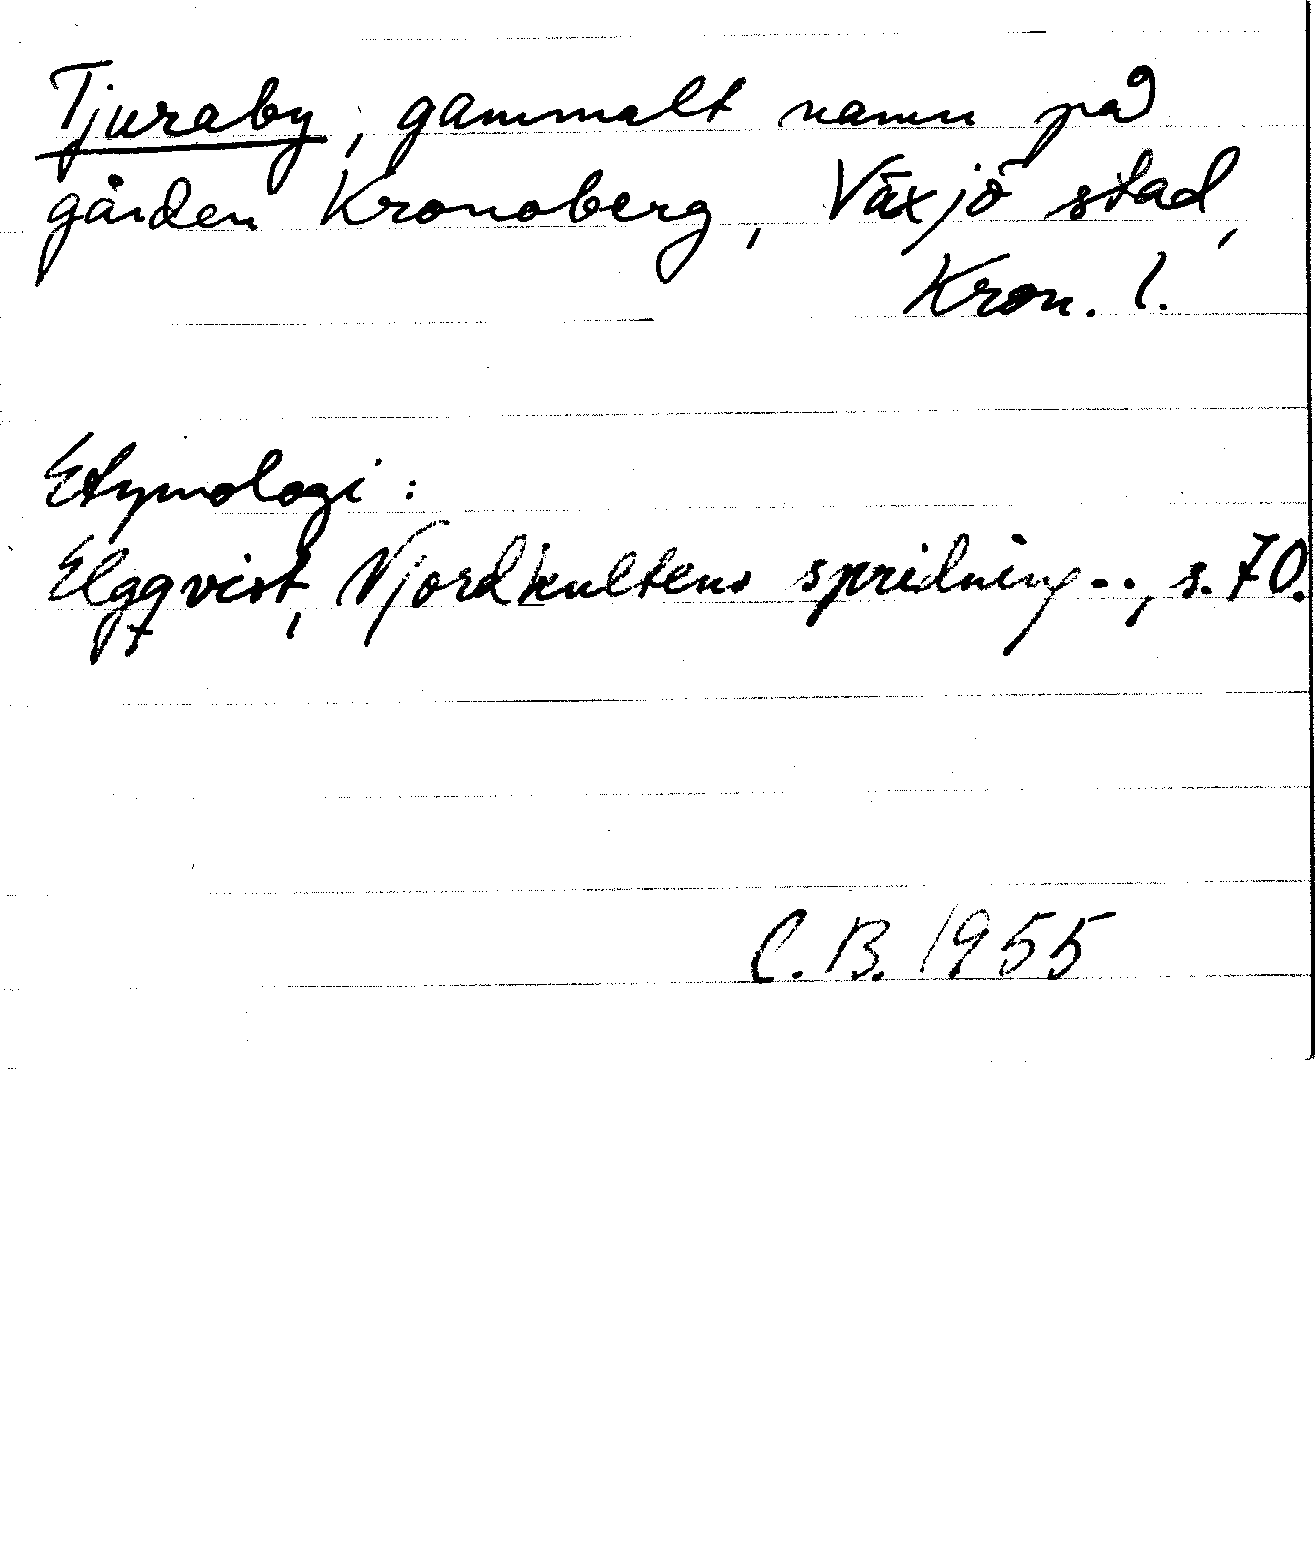 Tjuraby, gammalt namn på
gården Kronoberg, Växjö stad,
Kron. l.
Etymologi:
Elgqvist, Njordkultens spridning.., s. 70.
C. B. 1955